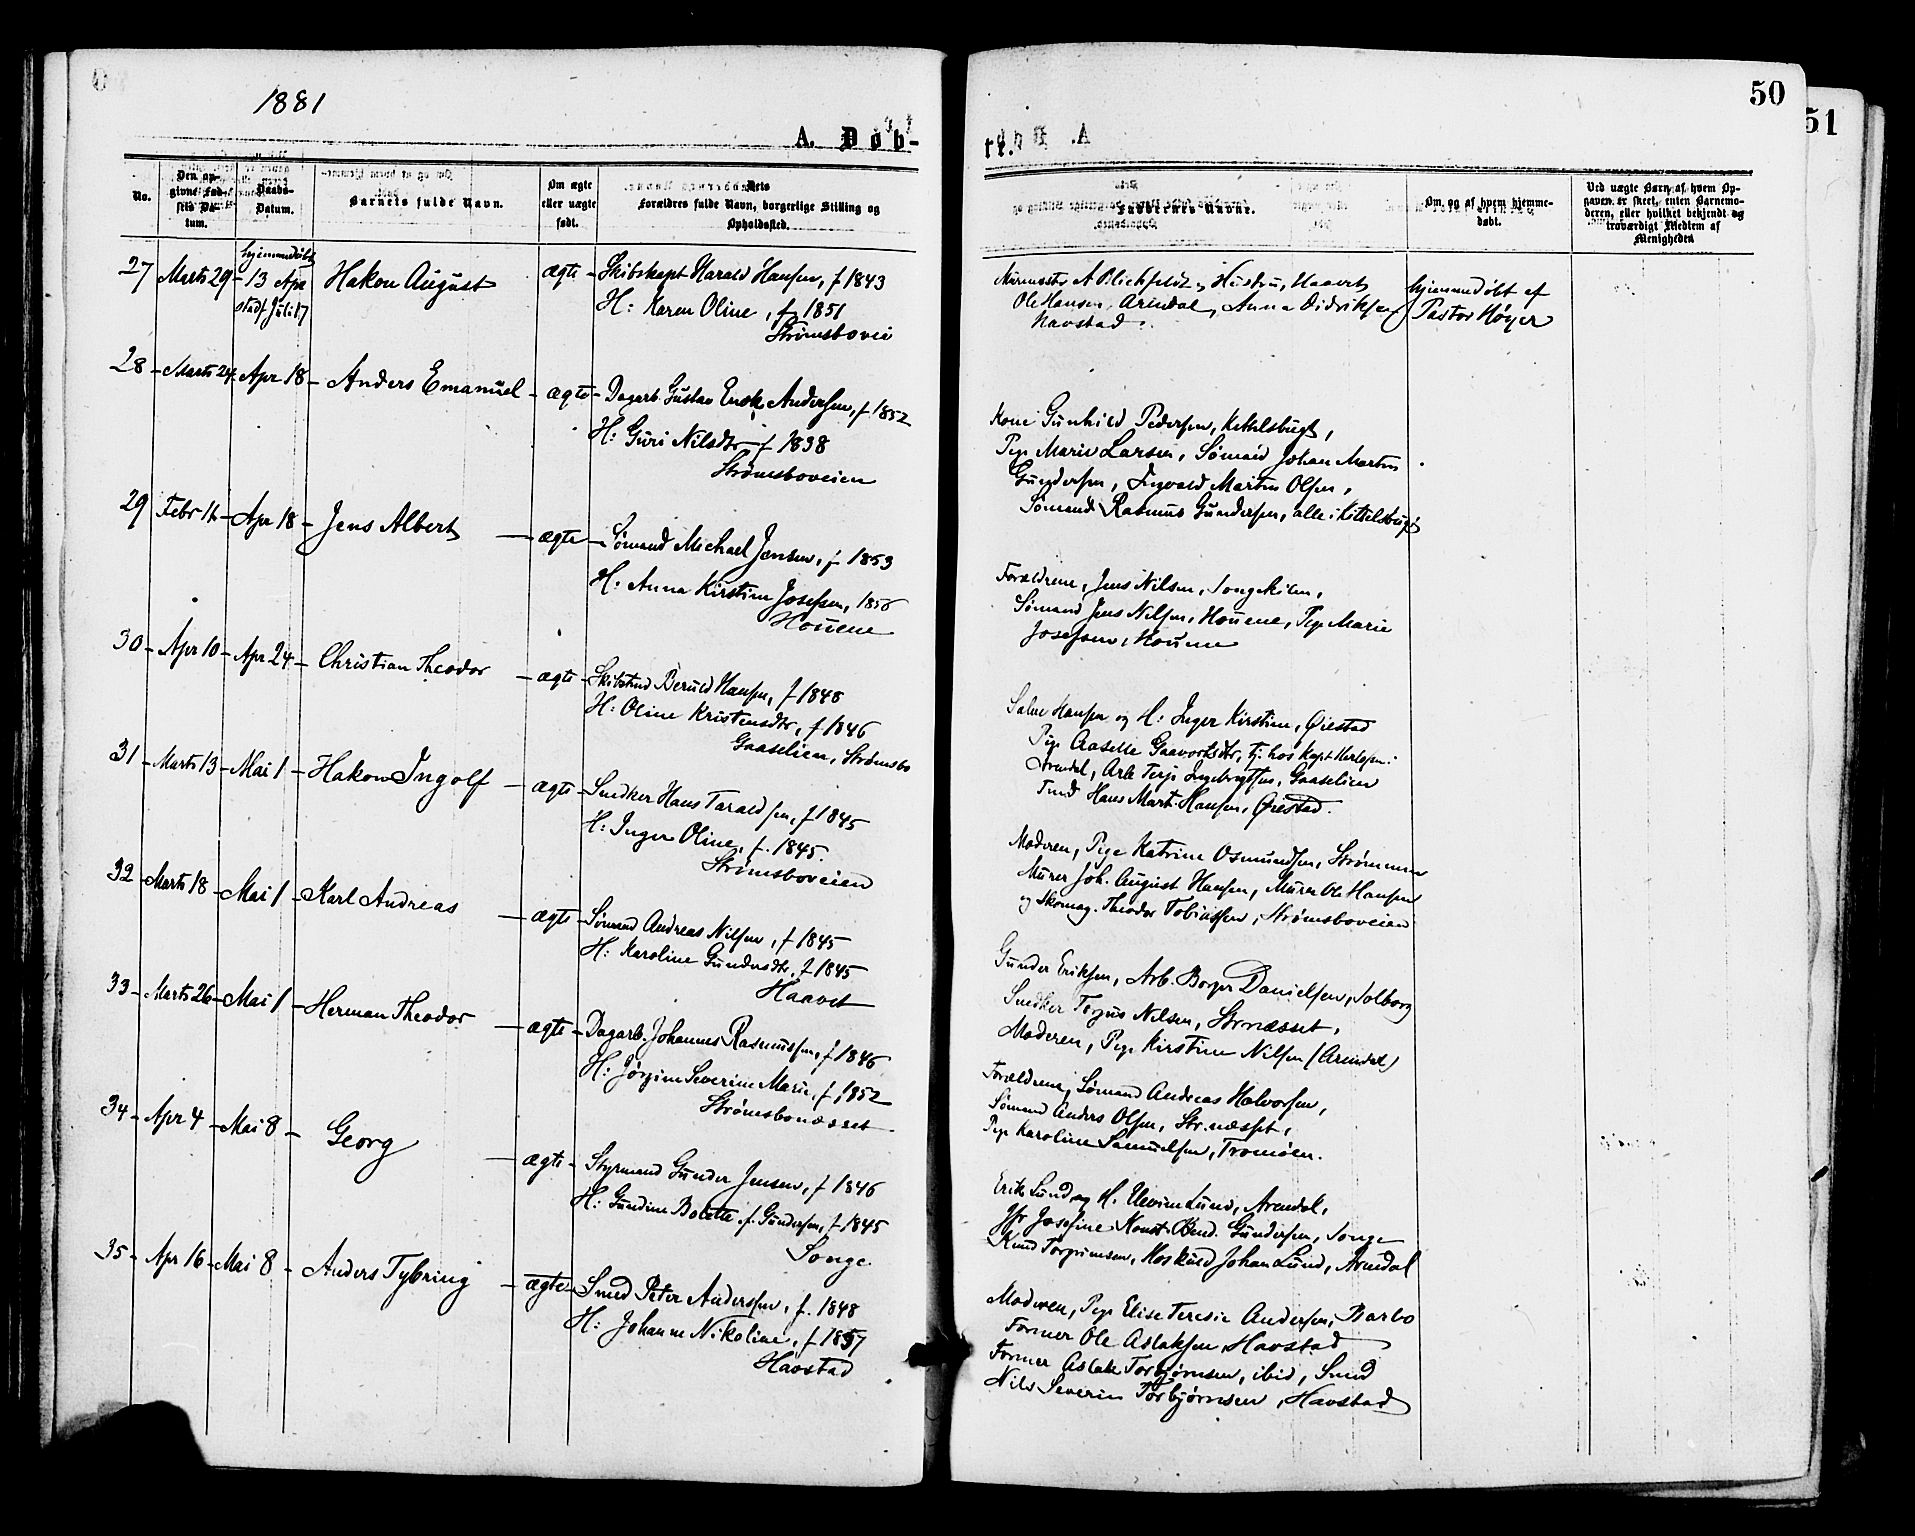 1881
50
51
A. Døb-
te.
No.
Den op-
givne Fød-
sels Da-
tum.
Daabs-
Datum.
Barnets fulde Navn.
Om ægte
eller uægte
født.
Dets
Forældres fulde Navn, borgerlige Stilling og
Opholdssted.
Faddernes Navne.
Om og af hvem hjemme-
døbt.
Ved uægte Børn, af hvem Op-
gaven er skeet, enten Barnemo-
deren, eller hvilket bekjendt og
troværdigt Medlem af
Menigheden
hjemmedøbt
27 Marts 29 - 13 Apr Hakon August ægte - Skibskapt Harald Hansen, f 1843
stadf Juli 17
H: Karen Oline, f 1851
Strømsbovei
og Hustru, Haavet
Ole Hansen, Arendal, Anna Didriksen
Havstad.
hjemmedøbt af
Pastor Høyer
28 - Marts 24 - Apr 18 - Anders Emanuel - ægte - Dagarb. Gustav Andersen, f 1852
H: Guri Nilsdtr f 1838
Strømsboveien
Kone Gunhild Pedersen, Kittelsbugt,
Pige Marie Larsen, Sømand Johan Martin
Gundersen, Ingvald Martin Olsen,
Sømand Rasmus Gundersen, alle i Kittelsbugt
29 Febr - Apr 18 - Jens Albert - ægte - Sømand Michael Jensen, f 1853
H: Anna Kirstine Josefsen, 1856
Houene
Forældrene, Jens Nilsen, Songekilen,
Sømand Jens Nilsen, Houene, Pige Marie
Josefsen, Houene
30 - Apr 10 - Apr 24 - Christian Theodor - ægte - Skibstmd Berulf Hansen, f 1848
H: Oline Kristensdtr, f 1846
Gaaselien, Strømsbo
Salve Hansen og H: Inger Kirstine, Øiestad
Pige Aaselle tj. hos Kapt
Arendal, Arb Terje Ingebrigtsen, Gaaselien
Tmd Hans Mart. Hansen, Øiestad.
31 - Marts 13 - Mai 1 - Hakon Ingolf - ægte - Snedker Hans Taraldsen, f 1845
H: Inger Oline, f. 1845.
Strømsboveien
Moderen, Pige Katrine Osmundsen, Strømmen
Murer Joh. August Hansen, Murer Ole Hansen
og Skomag. Theodor Tobiassen, Strømsboveien
32 - Marts 18 - Mai 1 - Karl Andreas - ægte - Sømand Andreas Nilsen, f 1845
H: Karoline Gundersdtr, f 1845
Haavet
Gunder Eriksen, Arb. Borger Danielsen, Solborg
Snedker Torjus Nilsen, Strnæsset,
Moderen, Pige Kirstine Nilsen (Arendal)
33 - Marts 26 - Mai 1 - Herman Theodor - ægte - Dagarb. Johannes Rasmussen, f 1846
H: Jørgine Severine Marie, f 1852
Strømsbonæsset
Forældrene, Sømand Andreas Halvorsen,
Sømand Anders Olsen, Str.næsset,
Pige Karoline Samuelsen, Tromøen.
34 - Apr 4 - Mai 8 - Georg - ægte - Styrmand Gunder Jensen, f 1846
H: Gundine Bolette f. Gundersen, f 1845
Songe.
Erik Lund og H. Lund, Arendal,
Jfr Josefine Gundersen, Songe
Knud Torgrimsen, Johan Lund, Arendal
35 - Apr 16 - Mai 8 - Anders Tybring - ægte - Smed Peter Anderssen, f. 1848
H: Johanne Nikoline, f 1857
Havstad
Moderen, Pige Elise Teresie Andersen, Barbo
Former Ole Aslaksen, Havstad
Former Aslak Torbjørnsen, ibid, Smed
Nils Severin Torbjørnsen, Havstad